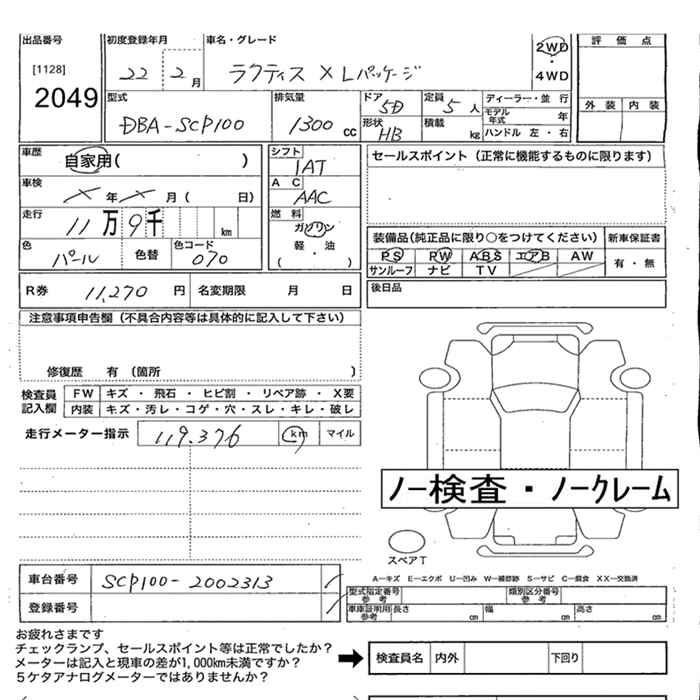 出品番号 初度登録年月 車名・グレード 評価点
[1128] 22 2月 ラクティス X Lパッケージ 2WD・4WD
2049 外装 内装
型式 排気量 ドア 5D 定員 5人 ディーラー・並行
DBA-SCP100 1300cc 形状 HB 積載 kg モデル年式 年
ハンドル 左・右
車歴 自家用( ) シフト 1AT セールスポイント(正常に機能するものに限ります)
車検 X年X月( 日) AC AAC
走行 11万9千 km 燃料 ガソリン 軽・油 ( )
装備品(純正品に限り○をつけてください) 新車保証書
色 パール 色替 色コード 070 PS PW ABS エアB AW 有・無
サンルーフ ナビ TV
R券 11,270円 名変期限 月 日 後日品
注意事項申告欄(不具合内容等は具体的に記入して下さい)
修復歴 有(箇所 )
検査員記入欄 FW キズ・飛石・ヒビ割・リペア跡・X要
内装 キズ・汚レ・コゲ・穴・スレ・キレ・破レ
走行メーター指示 119.376 km マイル
ノー検査・ノークレーム
スペアT
A-キズ E-エクボ U-凹み W-補修跡 S-サビ C-腐食 XX-交換済
車台番号 SCP100-2002313
型式指定番号 参考 類別区分番号 参考
登録番号 車庫証明用 参考 長さ cm 幅 cm 高さ cm
お疲れさまです
チェックランプ、セールスポイント等は正常でしたか?
メーターは記入と現車の差が1,000km未満ですか?
5ケタアナログメーターではありませんか?
検査員名 内外 下回り